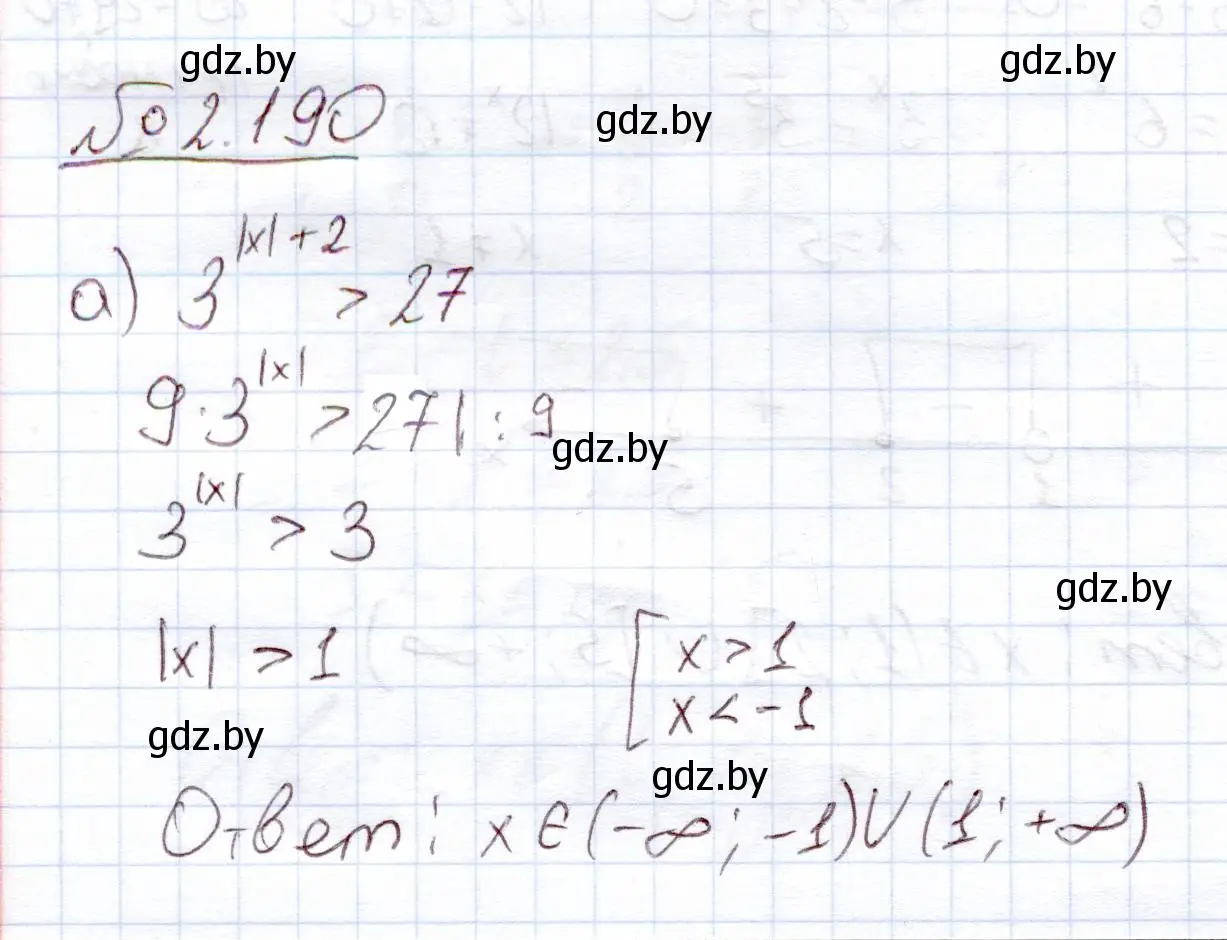 gdz.by
gdz.by
№ 2.190
gdz.by
а) 3^{|x|+2} > 27
9·3^{|x|} > 27 | : 9
gdz.by
3^{|x|} > 3
gdz.by
|x| > 1 [ x > 1
x < -1
gdz.by
gdz.by
Ответ: x ∈ (-∞; -1) ∪ (1; +∞)